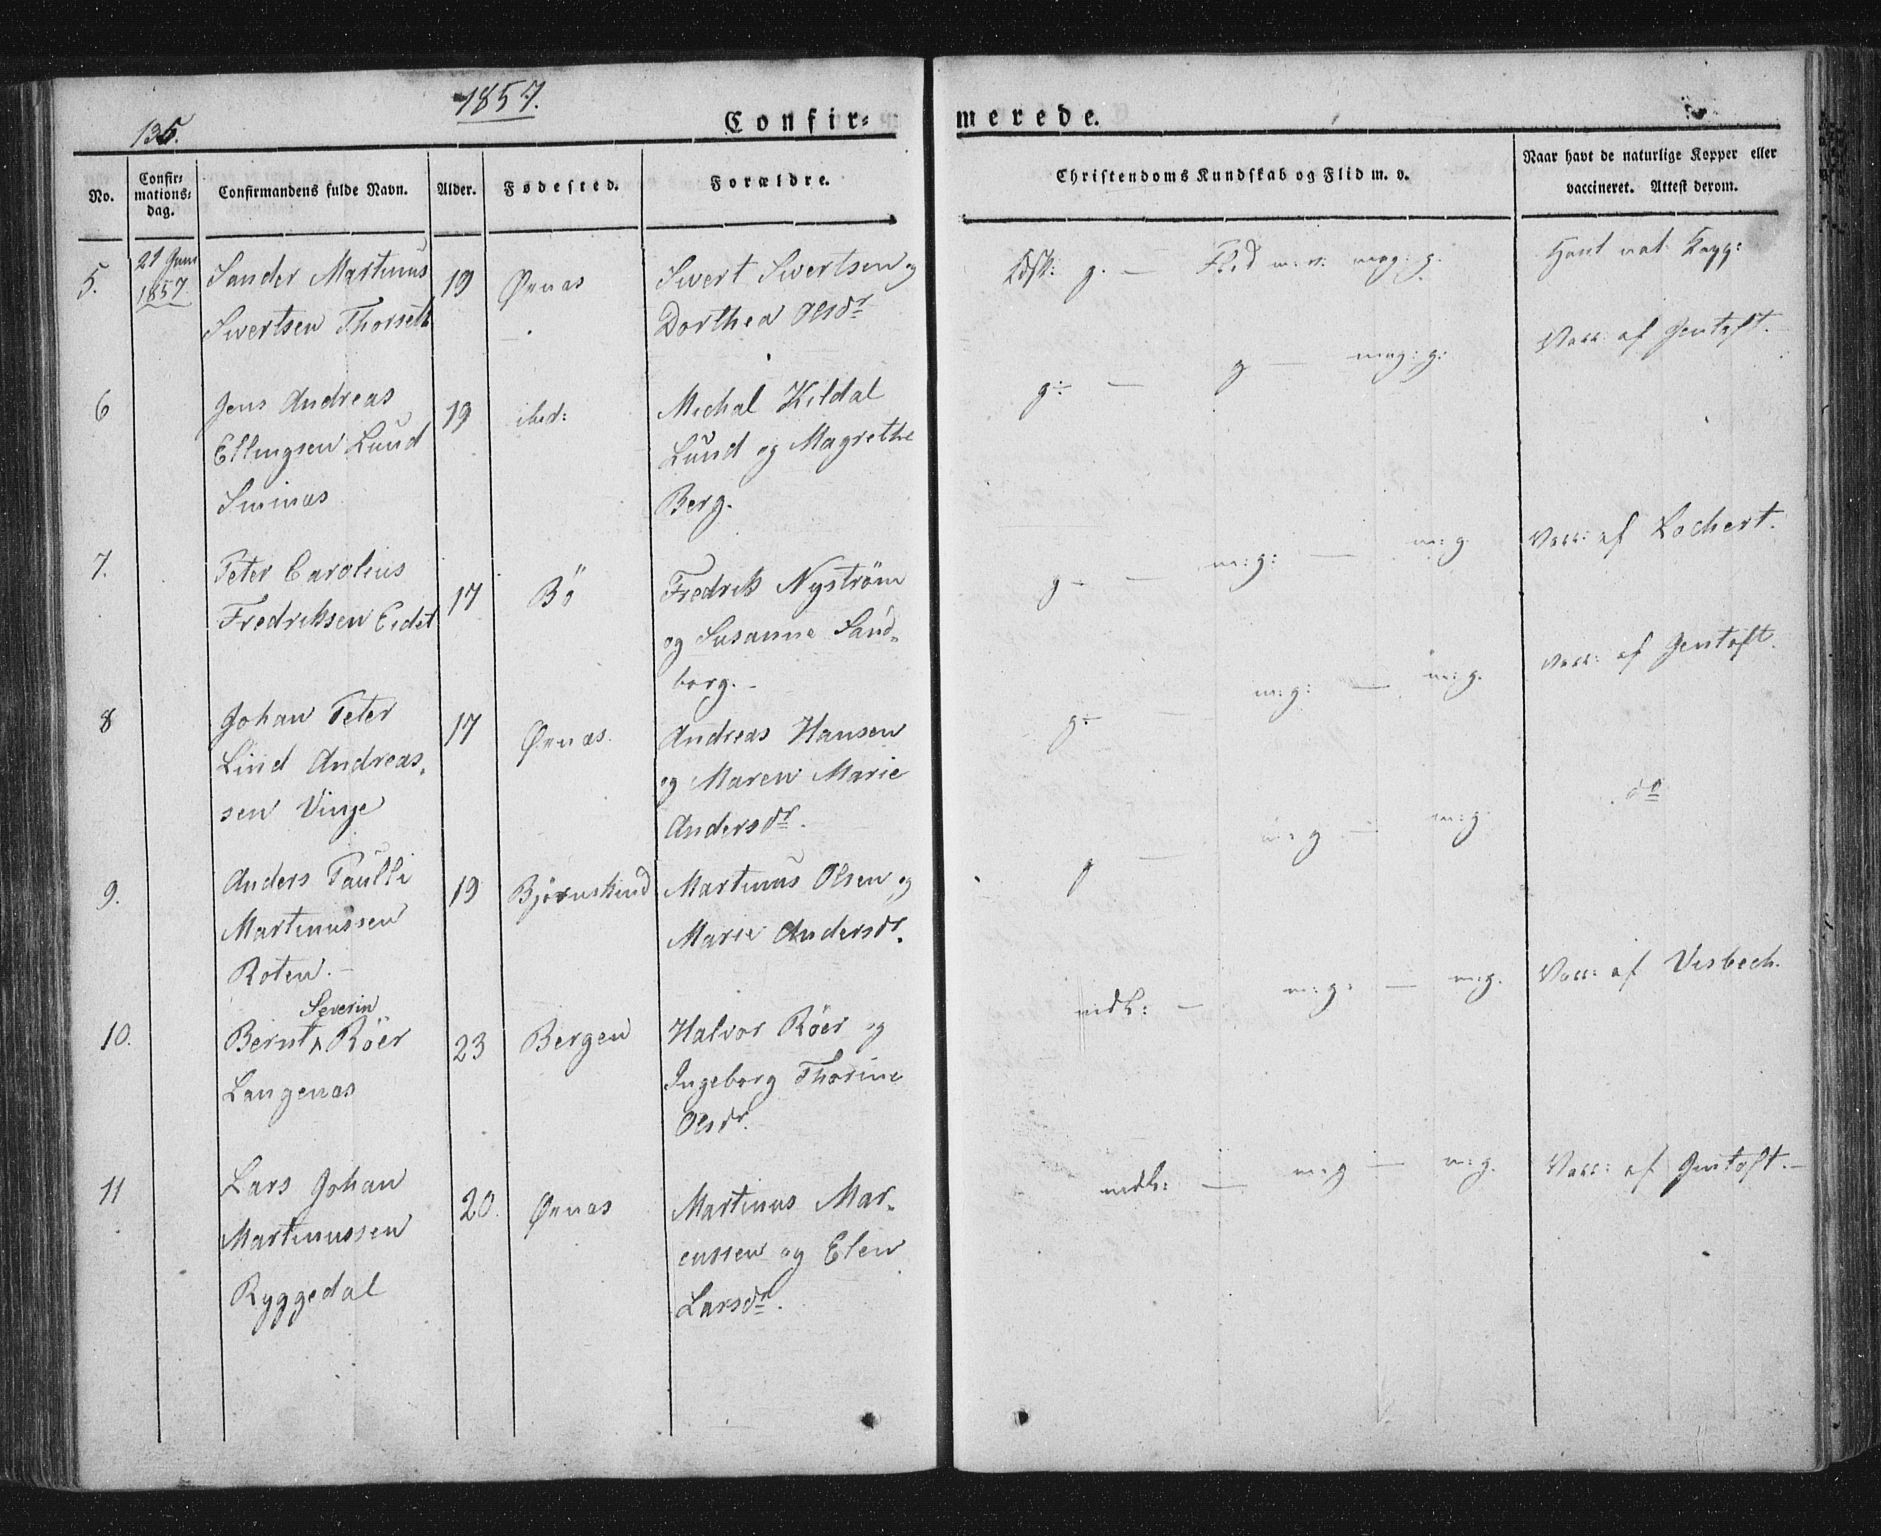 135.
1857.
Confir=
merede.
No.
Confir=
mations=
dag.
Confirmandens fulde Navn.
Alder.
Fødested.
Forældre.
Christendoms Kundskab og Flid m. v.
Naar havt de naturlige Kopper eller
vaccineret. Attest derom.
5.
21 Juni
1857
Sander Martinus
Sivertsen Thorset
19
Øxnæs
Sivert Sivertsen og
Dorthea Olsdr
Kdsk: g. — Flid m. v. meg: g.
Havt nat: Kopp:
6
Jens Andreas
Ellingsen Lund
19
ibid:
Michal Kildal
Lund og Magrethe
Berg.
g: — g — meg: g:
Vacc: af Gentoft.
7.
Peter Carolius
Fredriksen Eidet
17
Bö
Fredrik Nyström
og Susanne Sand-
borg.
g — m: g: — m: g.
Vacc: af Lochert.
8
Johan Peter
Lind Andreas-
sen Vinje
17
Øxnæs.
Andreas Hansen
og Maren Marie
Andersdr.
g — m: g: — m: g.
Vacc: af Gentoft.
9.
Anders Paulli
Martinussen
Roten.
19
Bjørnskind
Martinus Olsen og
Marie Andersdr.
g — m: g — m: g.
do
10.
Severin
Bernt Röer
Langenæs
23
Bergen
Halvor Röer og
Ingeborg Thorine
Olsdr.
mdl: — m: g: — m: g.
Vacc: af Visbech.
11
Lars Johan
Martinussen
Ryggedal
20.
Øxnæs
Martinus Mar-
cussen og Elen
Larsdr.
mdl: — m: g — m: g.
Vacc: af Gentoft.